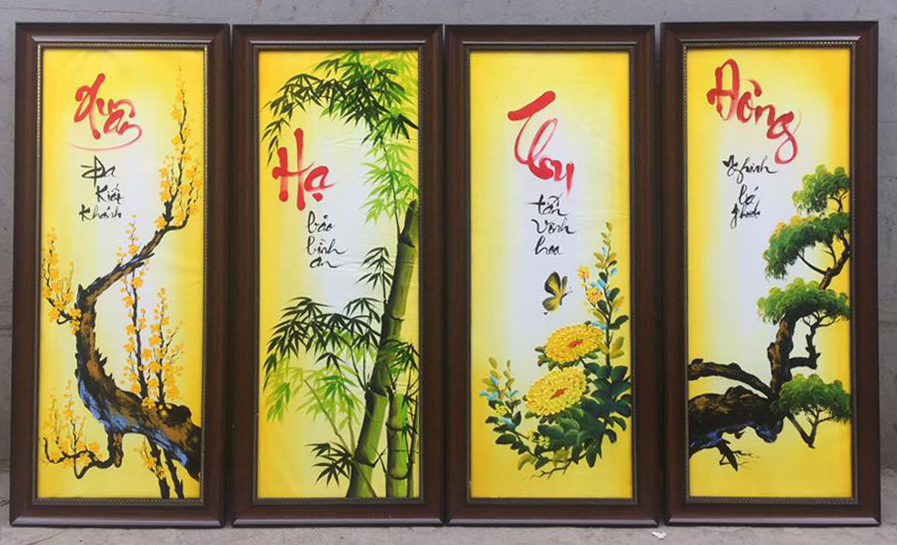 Xuân
Kiết
Khánh
Hạ
bảo
bình
an
Thu
tấn
vinh
hoa
Đông
Nghinh
bá
phước